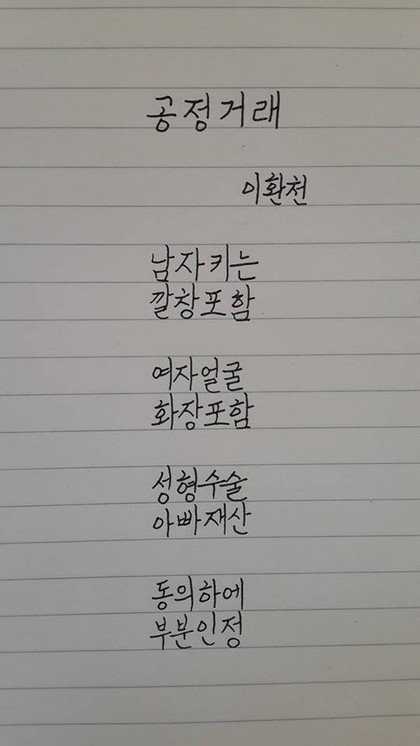 공정거래
이환천
남자키는
깔창포함
여자얼굴
화장포함
성형수술
아빠재산
동의하에
부분인정